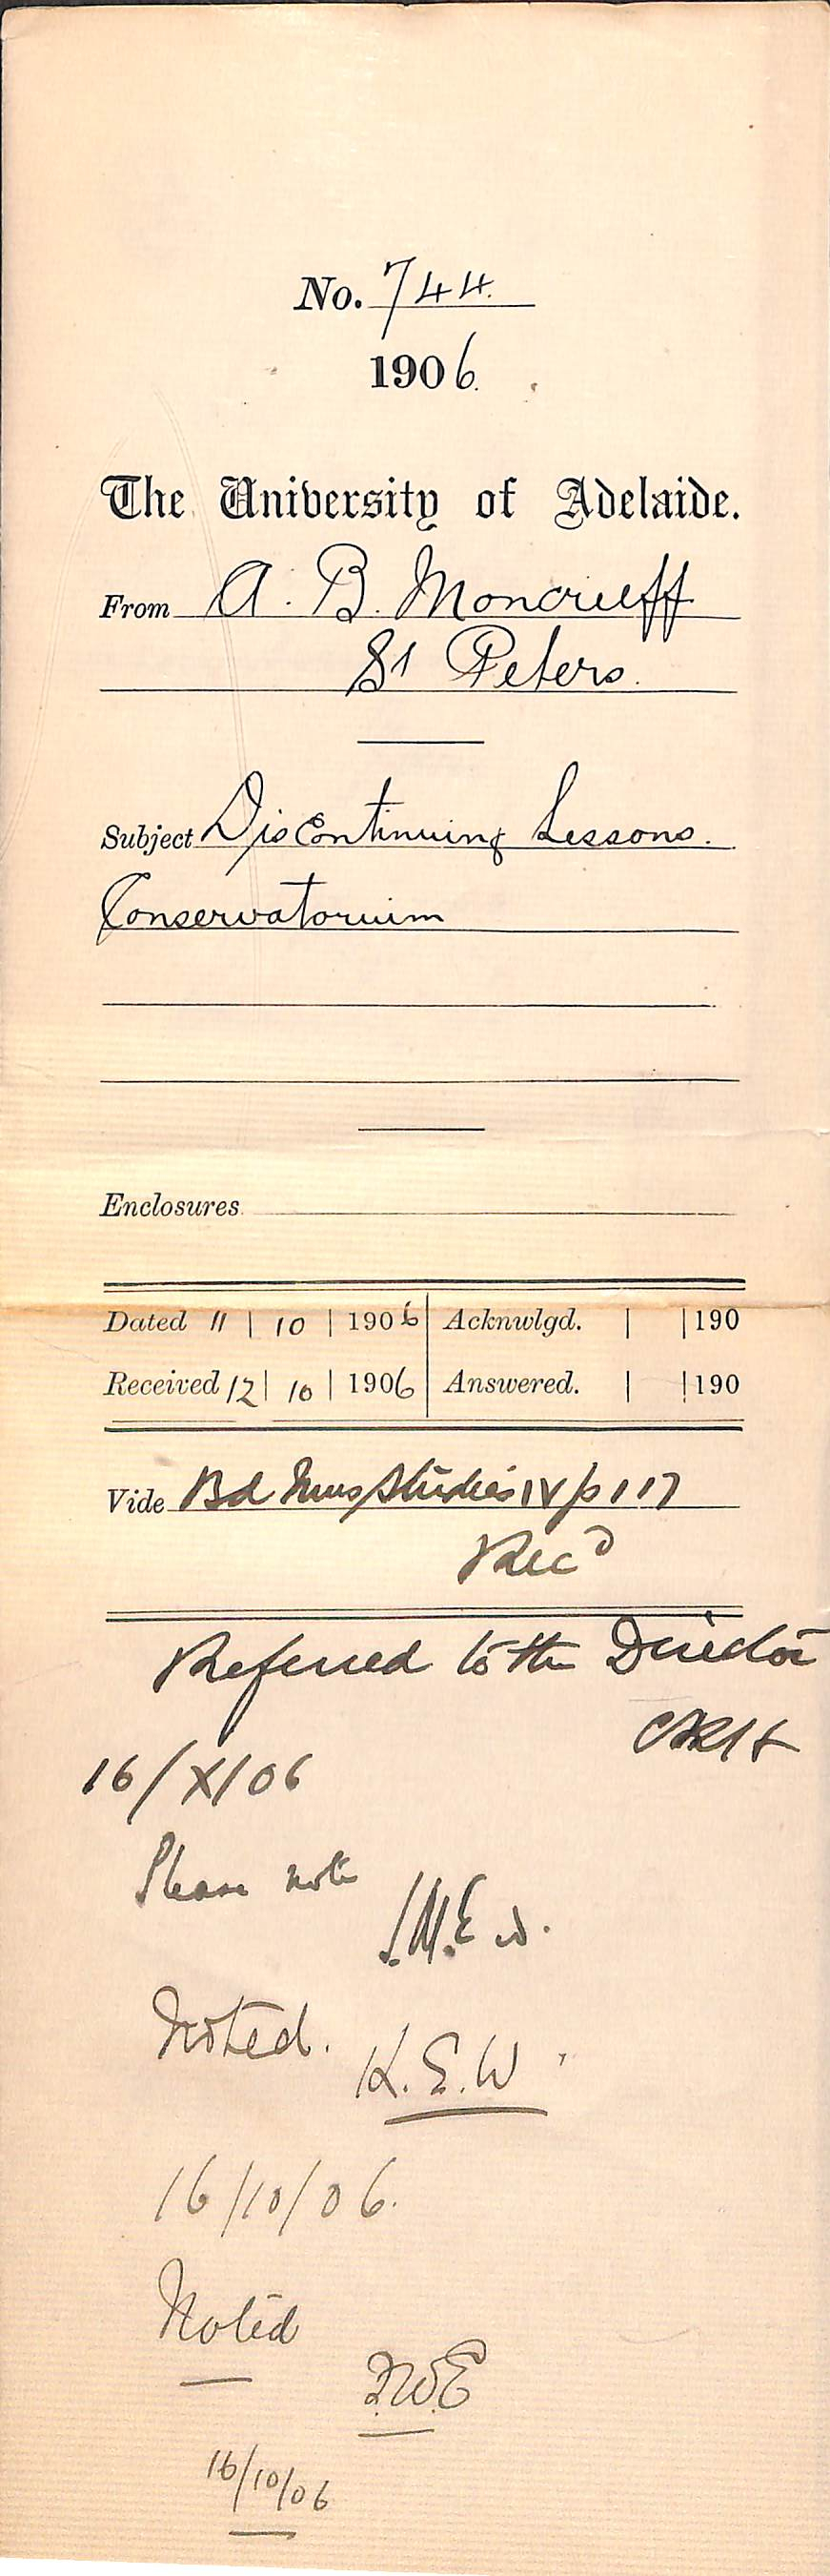 No. 744.
1906.
The University of Adelaide.
From A. B. Moncrieff
St Peters.
Subject Discontinuing Lessons.
Conservatorium
Enclosures
Dated 11 | 10 | 1906 Acknwlgd. | | 190
Received 12 | 10 | 1906 Answered. | | 190
Vide Bd Mus Studies IV p 117
Recd
Referred to the Director
CRH
16/X/06
Please note
J.M.E.
Noted.
K.E.W.
16/10/06.
Noted
F.W.E
16/10/06